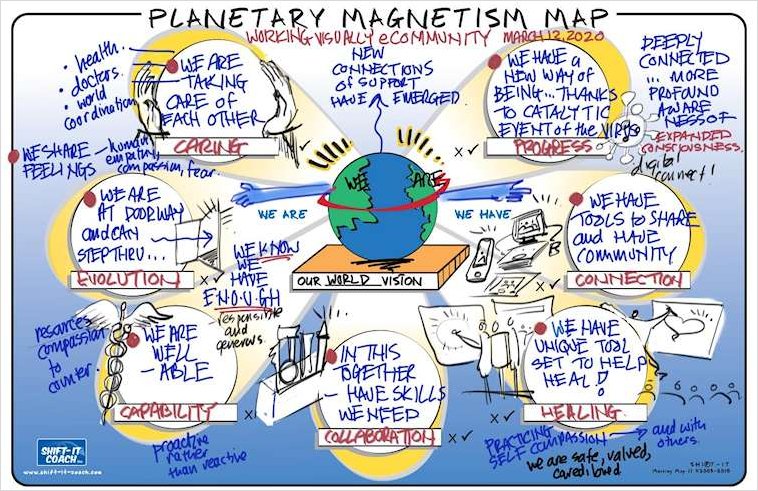 PLANETARY MAGNETISM MAP
WORKING VISUALLY eCOMMUNITY MARCH 12, 2020
• health.
• doctors.
• world
coordination
WE ARE
TAKING
CARE OF
EACH OTHER
CARING
NEW
CONNECTIONS
OF SUPPORT
HAVE EMERGED.
WE HAVE A
NEW WAY OF
BEING... THANKS
TO CATALYTIC
EVENT of the VIRUS
PROGRESS
DEEPLY
CONNECTED
... MORE
PROFOUND
AWARE
NESS OF
EXPANDED
CONSCIOUSNESS.
digital
connect!
WE SHARE
FEELINGS
human
empathy,
compassion, fear.
WE ARE
AT DOORWAY
and CAN
STEP THRU...
EVOLUTION
WE ARE
WE ARE
WE HAVE
OUR WORLD VISION
WE KNOW
WE
HAVE
ENOUGH
- responsible
and
generous.
WE HAVE
TOOLS to SHARE
and HAVE
COMMUNITY
CONNECTION
resources
compassion
to
counter.
WE ARE
WELL
- ABLE
CAPABILITY
proactive
rather
than reactive
IN THIS
TOGETHER
- HAVE SKILLS
WE NEED
COLLABORATION
WE HAVE
UNIQUE TOOL
SET TO HELP
HEAL!
HEALING
PRACTICING
SELF COMPASSION
→ and with
others.
we are safe, valued,
cared loved
SHIFT-IT
COACH
www.shift-it-coach.com
SHIFT-IT